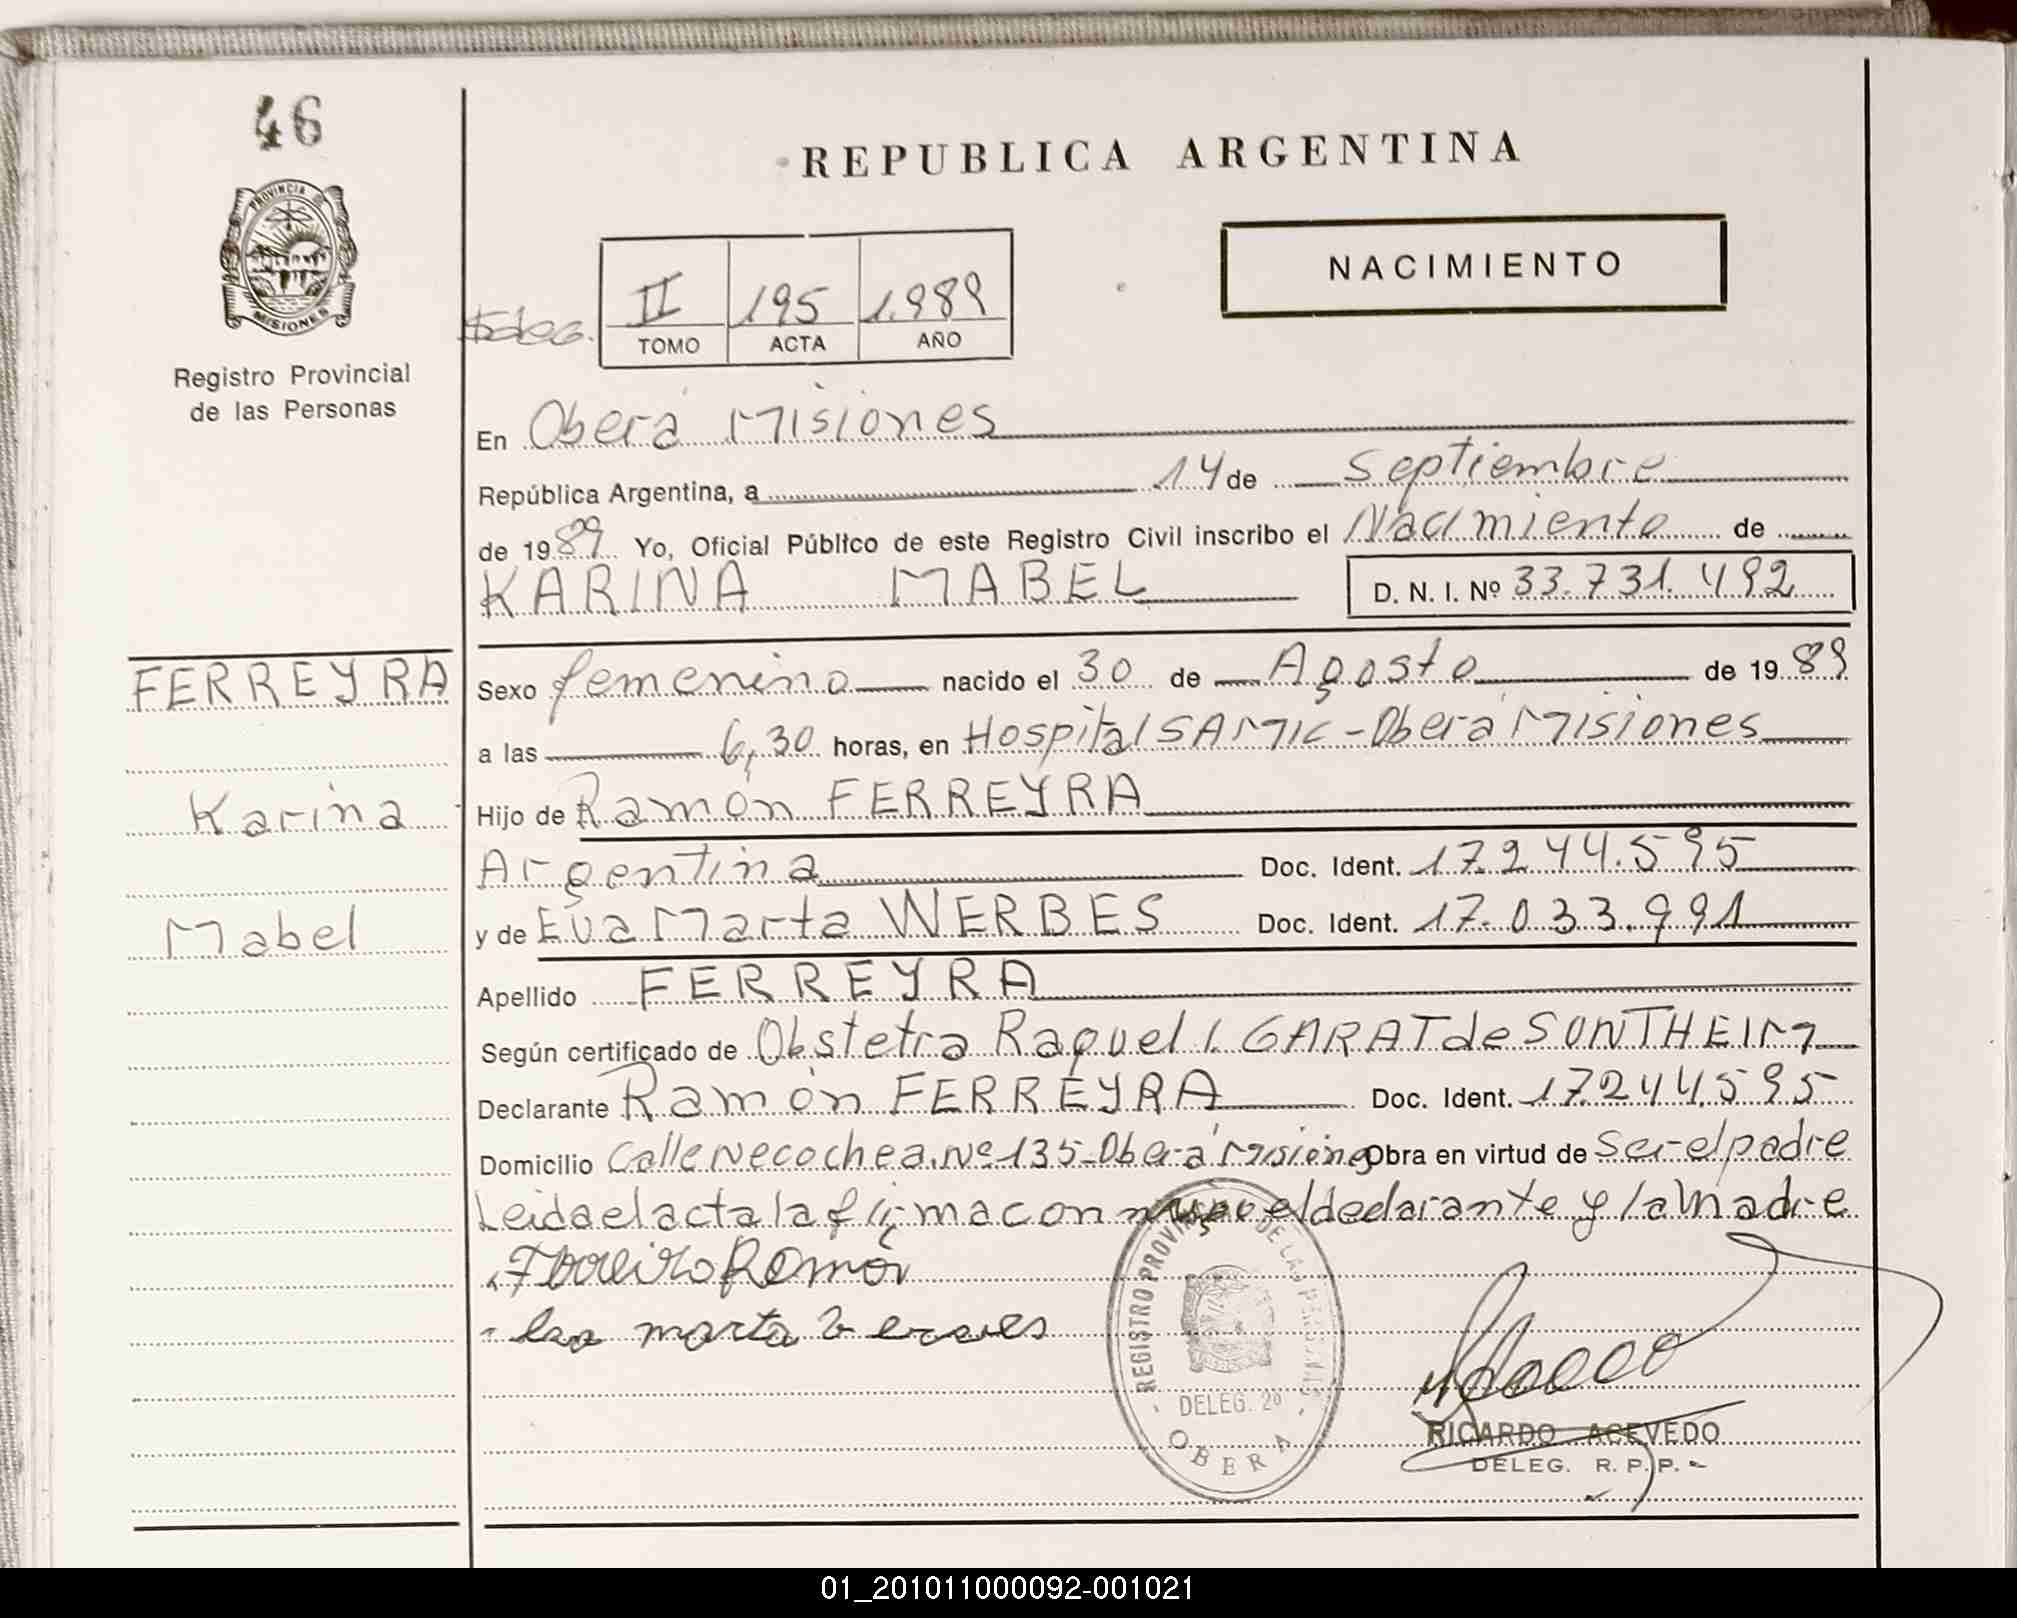 46
REPUBLICA ARGENTINA
PROVINCIA
MISIONES
Registro Provincial
de las Personas
II 195 1.989
TOMO ACTA AÑO
NACIMIENTO
En Oberá Misiones
República Argentina, a 14 de Septiembre
de 1989 Yo, Oficial Público de este Registro Civil inscribo el Nacimiento de
KARINA MABEL D. N. I. Nº 33.731.492
FERREYRA
Sexo femenino nacido el 30 de Agosto de 1989
a las 6,30 horas, en Hospital SAMIC - Oberá Misiones
Karina
Hijo de Ramón FERREYRA
Argentina Doc. Ident. 17.244.595
Mabel
y de Eva Marta WERBES Doc. Ident. 17.033.991
Apellido FERREYRA
Según certificado de Obstetra Raquel I. GARAT de SONTHEIM
Declarante Ramón FERREYRA Doc. Ident. 17.244.595
Domicilio Calle Necochea. Nº 135 - Oberá Misiones Obra en virtud de Ser el padre
Leida el acta la firma con el declarante y la Madre
Ramón
marta
REGISTRO PROVINCIAL DE LAS PERSONAS
DELEG. 2º
OBERA
RICARDO ACEVEDO
DELEG. R. P. P.
01_201011000092-001021